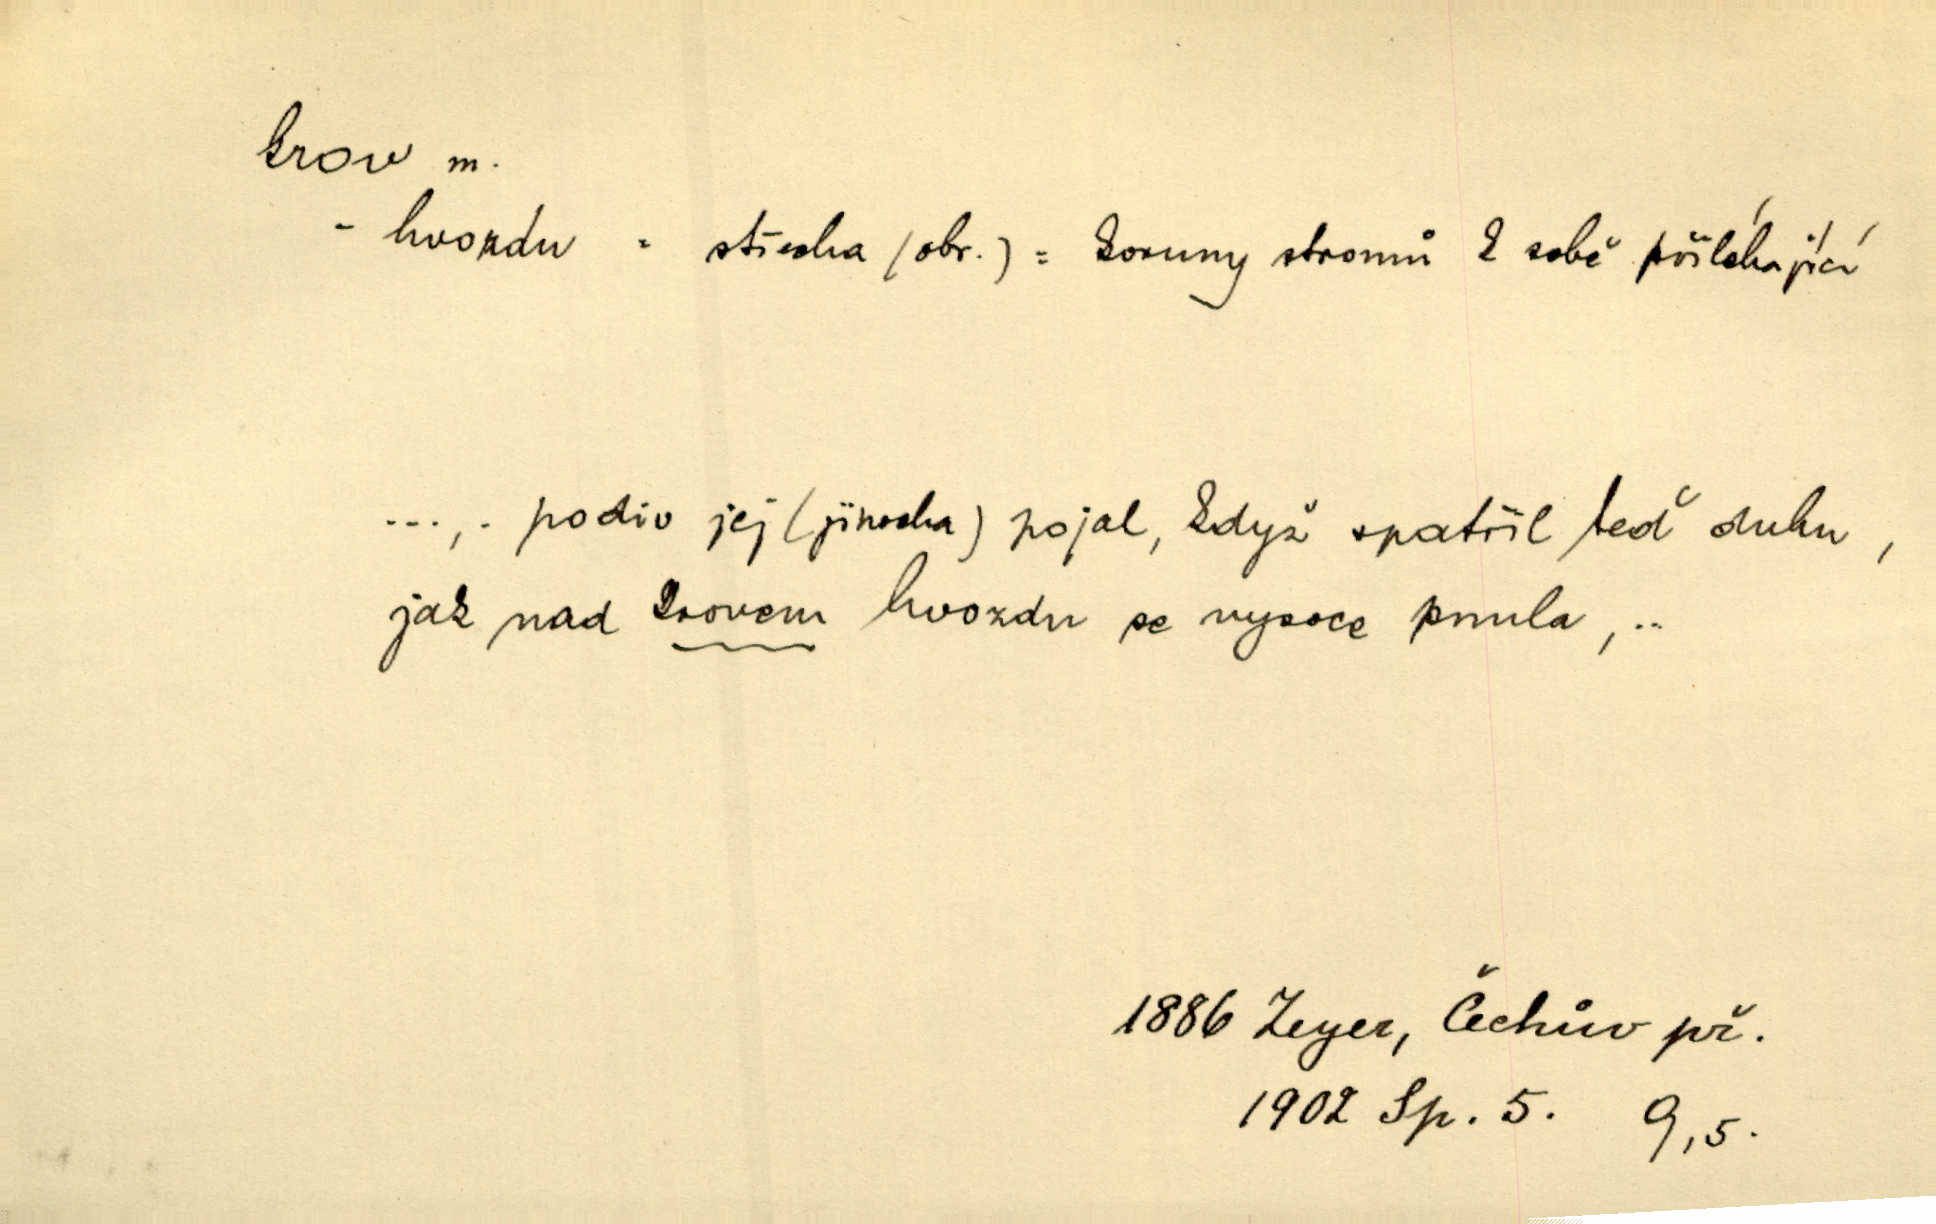 krov m.
- hvozdu = střecha (obr.) = koruny stromů k sobě přiléhající
..., . podiv jej (jinocha) pojal, když spatřil teď duhu,
jak nad krovem hvozdu se vysoce pnula, ..
1886 Zeyer, Čechův př.
1902 Sp. 5. 9,5.